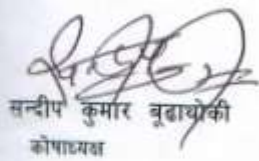 सन्दीप कुमार बूढाथोकी
कोषाध्यक्ष